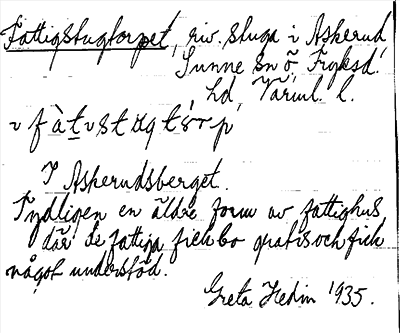 Fattigstugtorpet, riv. stuga i Askerud
Sunne sn ö. Fryksd.
hd, Värml. l.
I Askerudsberget.
Tydligen en äldre form av fattighus
där de fattiga fick bo gratis och fick
något understöd.
Greta Hedin 1935.